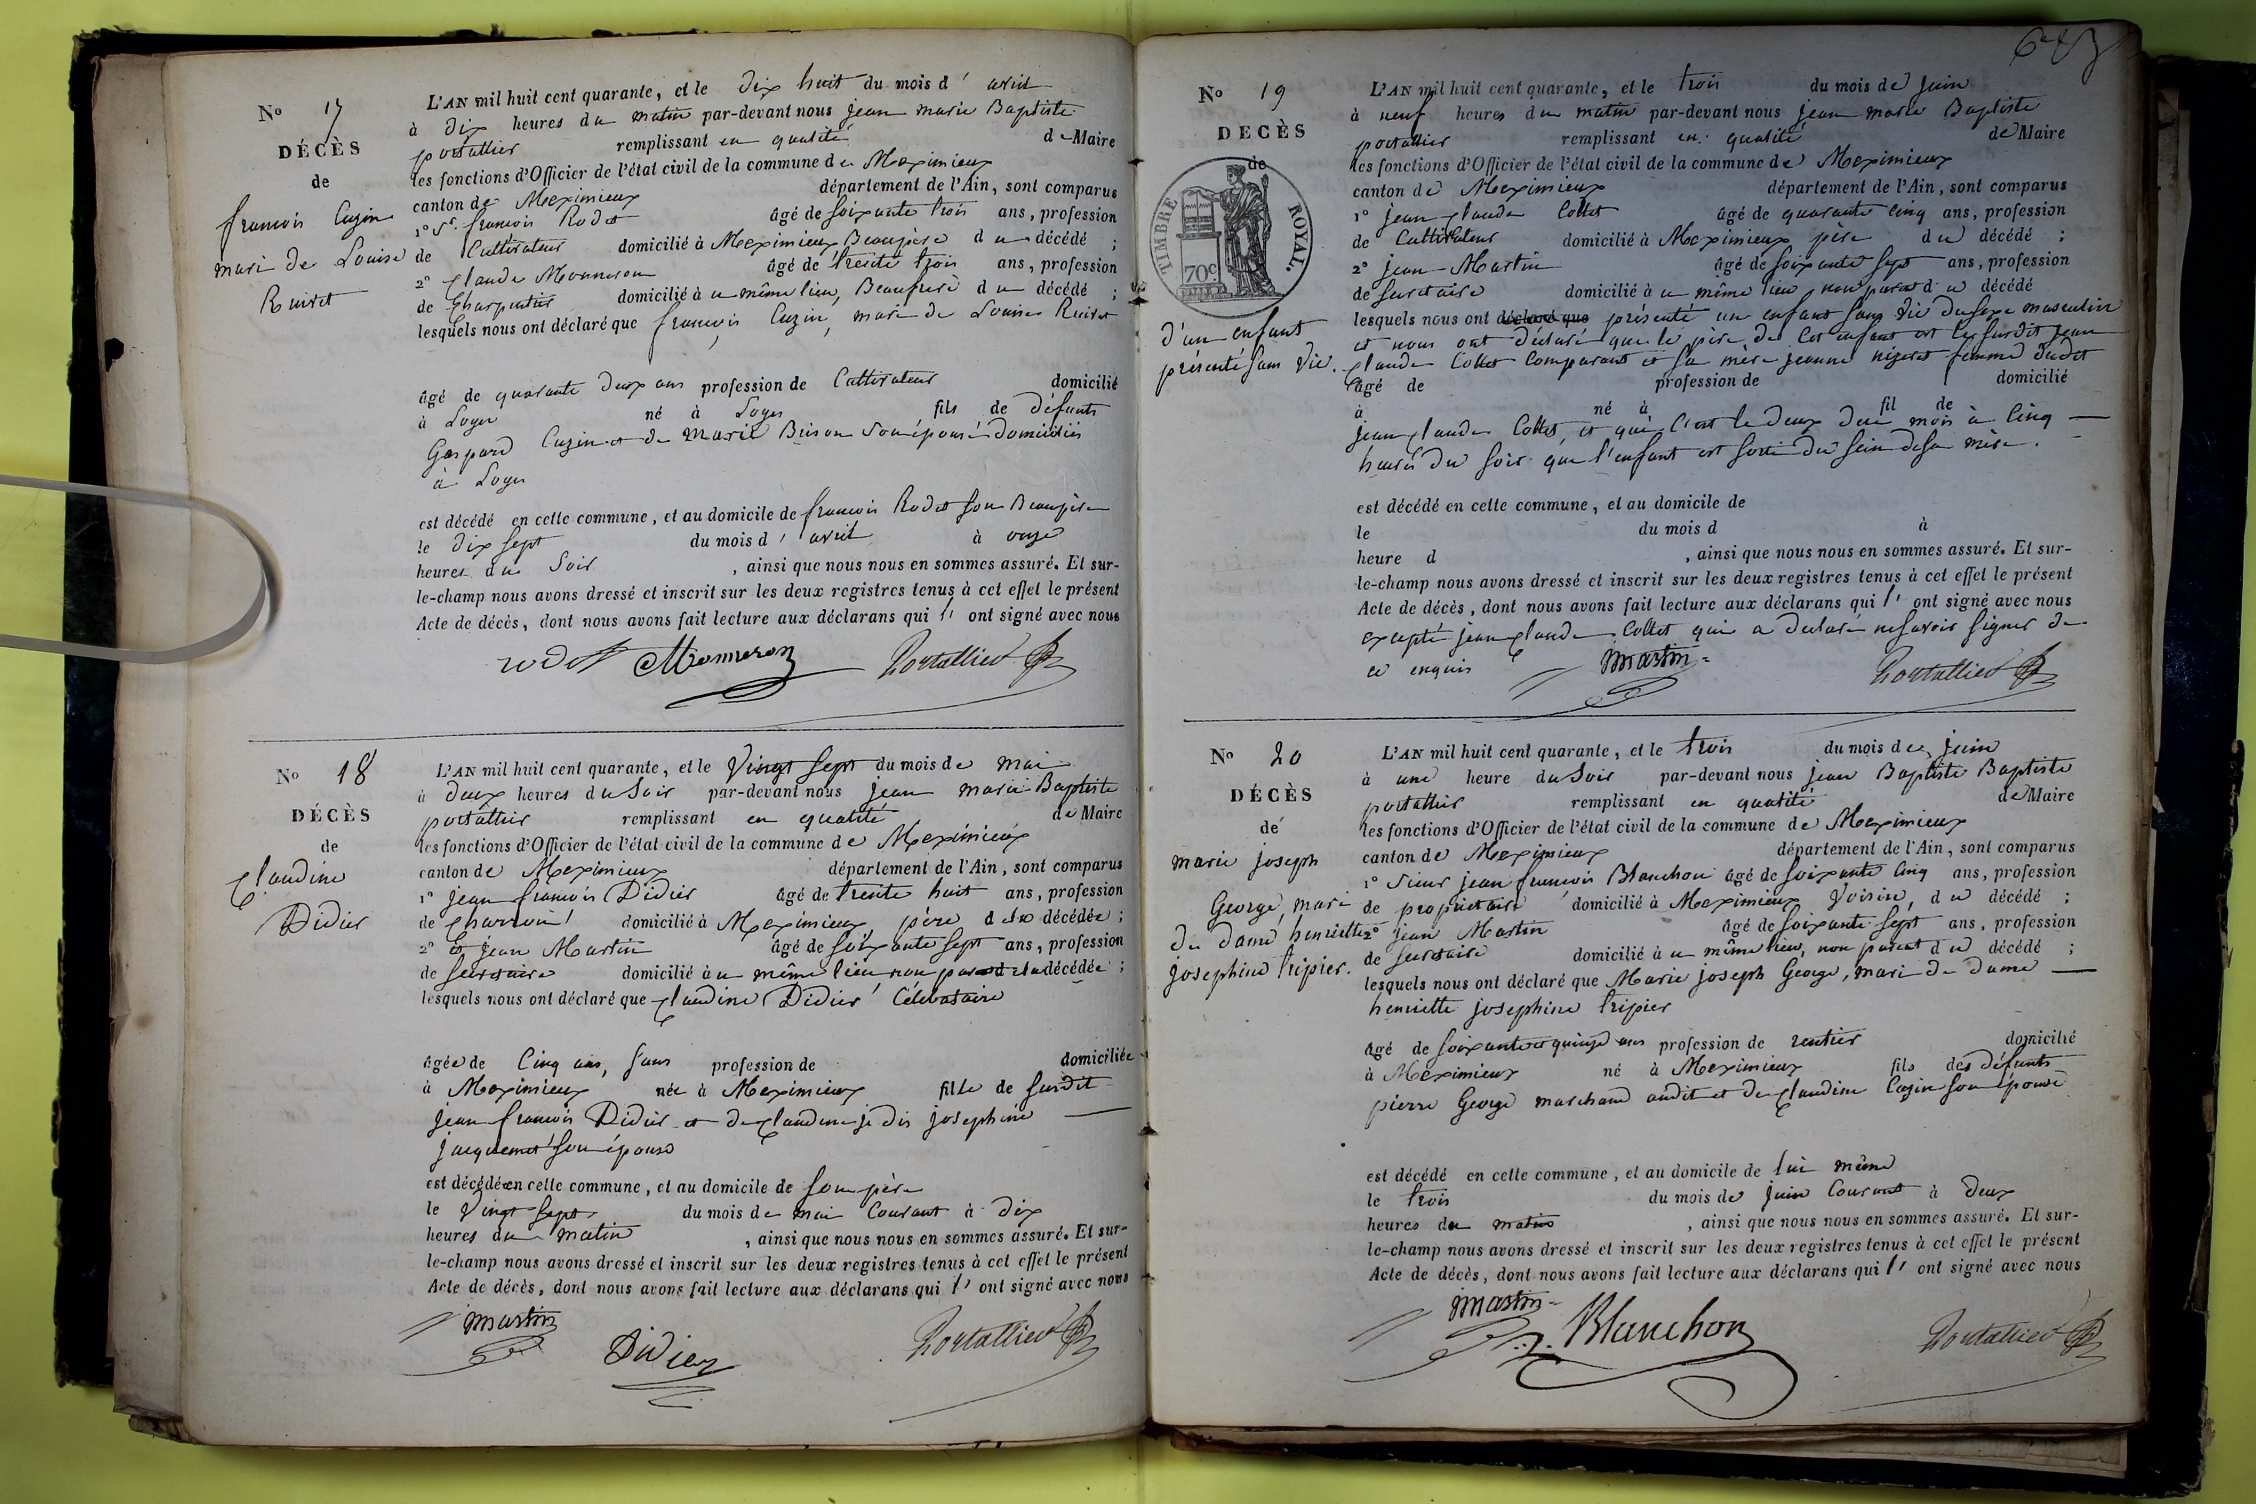 No 17
DÉCÈS
de
françois Cuzin
mari de Louise
Ruivet
L'AN mil huit cent quarante, et le dix huit du mois d' avril
à dix heures du matin par-devant nous jean marie Baptiste
portallier remplissant en qualité de Maire
les fonctions d'Officier de l'état civil de la commune de Meximieux
canton de Meximieux département de l'Ain, sont comparus
1° Sr. françois Rodet âgé de soixante trois ans, profession
de Cultivateur domicilié à Meximieux Beaupère du décédé ;
2° Claude Monneron âgé de trente trois ans, profession
de Charpentier domicilié à u même lieu, Beaufrère du décédé ;
lesquels nous ont déclaré que françois Cuzin, mari de Louise Ruivet
âgé de quarante deux ans profession de Cultivateur domicilié
à Loyes né à Loyes fils de défunts
Gaspard Cuzin et de Marie Brison son épouse domiciliés
à Loyes
est décédé en cette commune, et au domicile de françois Rodet son Beaupère
le dix sept du mois d' avril à onze
heures du Soir , ainsi que nous nous en sommes assuré. Et sur-
le-champ nous avons dressé et inscrit sur les deux registres tenus à cet effet le présent
Acte de décès, dont nous avons fait lecture aux déclarans qui l' ont signé avec nous
rodet Monneron Portallier
No 18
DÉCÈS
de
Claudine
Didier
L'AN mil huit cent quarante, et le Vingt sept du mois de mai
à deux heures du Soir par-devant nous jean marie Baptiste
portallier remplissant en qualité de Maire
les fonctions d'Officier de l'état civil de la commune de Meximieux
canton de Meximieux département de l'Ain, sont comparus
1° jean françois Didier âgé de trente huit ans, profession
de charron domicilié à Meximieux, père de la décédée ;
2° et jean Martin âgé de soixante sept ans, profession
de Secretaire domicilié à u même lieu non parent de la décédée ;
lesquels nous ont déclaré que Claudine Didier Célibataire
âgée de Cinq ans, sans profession de domiciliée
à Meximieux née à Meximieux fille de susdit
jean françois Didier et de Claudine je dis josephine
jacquemet son épouse
est décédée en cette commune, et au domicile de son père
le Vingt sept du mois de mai Courant à dix
heures du matin , ainsi que nous nous en sommes assuré. Et sur-
le-champ nous avons dressé et inscrit sur les deux registres tenus à cet effet le présent
Acte de décès, dont nous avons fait lecture aux déclarans qui l' ont signé avec nous
martin Didier Portallier
No 19
DECÈS
de
TIMBRE ROYAL.
70c.
d'un enfant
présenté sans vie.
L'AN mil huit cent quarante, et le trois du mois de juin
à neuf heures du matin par-devant nous jean marie Baptiste
portallier remplissant en qualité de Maire
les fonctions d'Officier de l'état civil de la commune de Meximieux
canton de Meximieux département de l'Ain, sont comparus
1° jean Claude Collet âgé de quarante cinq ans, profession
de Cultivateur domicilié à Meximieux père du décédé ;
2° jean Martin âgé de soixante sept ans, profession
de secretaire domicilié à u même lieu, non parent du décédé
lesquels nous ont déclaré que présenté un enfant sans vie du sexe masculin
et nous ont déclaré que le père de cet enfant est le susdit jean
Claude Collet Comparant et sa mère jeanne nizeret femme dudit
âgé de profession de domicilié
à né à fil de
jean Claude Collet, et que c'est le deux du mois à Cinq
heures du soir que l'enfant est sorti du sein de sa mère.
est décédé en cette commune, et au domicile de
le du mois d à
heure d , ainsi que nous nous en sommes assuré. Et sur-
le-champ nous avons dressé et inscrit sur les deux registres tenus à cet effet le présent
Acte de décès, dont nous avons fait lecture aux déclarans qui l' ont signé avec nous
excepté jean Claude Collet qui a déclaré ne savoir signer de
ce enquis martin Portallier
No 20
DÉCÈS
de
marie joseph
George, mari
de dame henriette
josephine tripier.
L'AN mil huit cent quarante, et le trois du mois de juin
à une heure du Soir par-devant nous jean Baptiste Baptiste
portallier remplissant en qualité de Maire
les fonctions d'Officier de l'état civil de la commune de Meximieux
canton de Meximieux département de l'Ain, sont comparus
1° Sieur jean françois Blanchon âgé de soixante cinq ans, profession
de propriétaire domicilié à Meximieux Voisin, du décédé ;
2° jean Martin âgé de soixante sept ans, profession
de secretaire domicilié à u même lieu, non parent du décédé ;
lesquels nous ont déclaré que Marie joseph George, mari de dame
henriette josephine tripier
âgé de soixante et quinze ans profession de rentier domicilié
à Meximieux né à Meximieux fils des défunts
pierre George marchand audit et de Claudine Cazin son épouse
est décédé en cette commune, et au domicile de lui même
le trois du mois de juin Courant à deux
heures du matin , ainsi que nous nous en sommes assuré. Et sur-
le-champ nous avons dressé et inscrit sur les deux registres tenus à cet effet le présent
Acte de décès, dont nous avons fait lecture aux déclarans qui l' ont signé avec nous
martin Blanchon Portallier